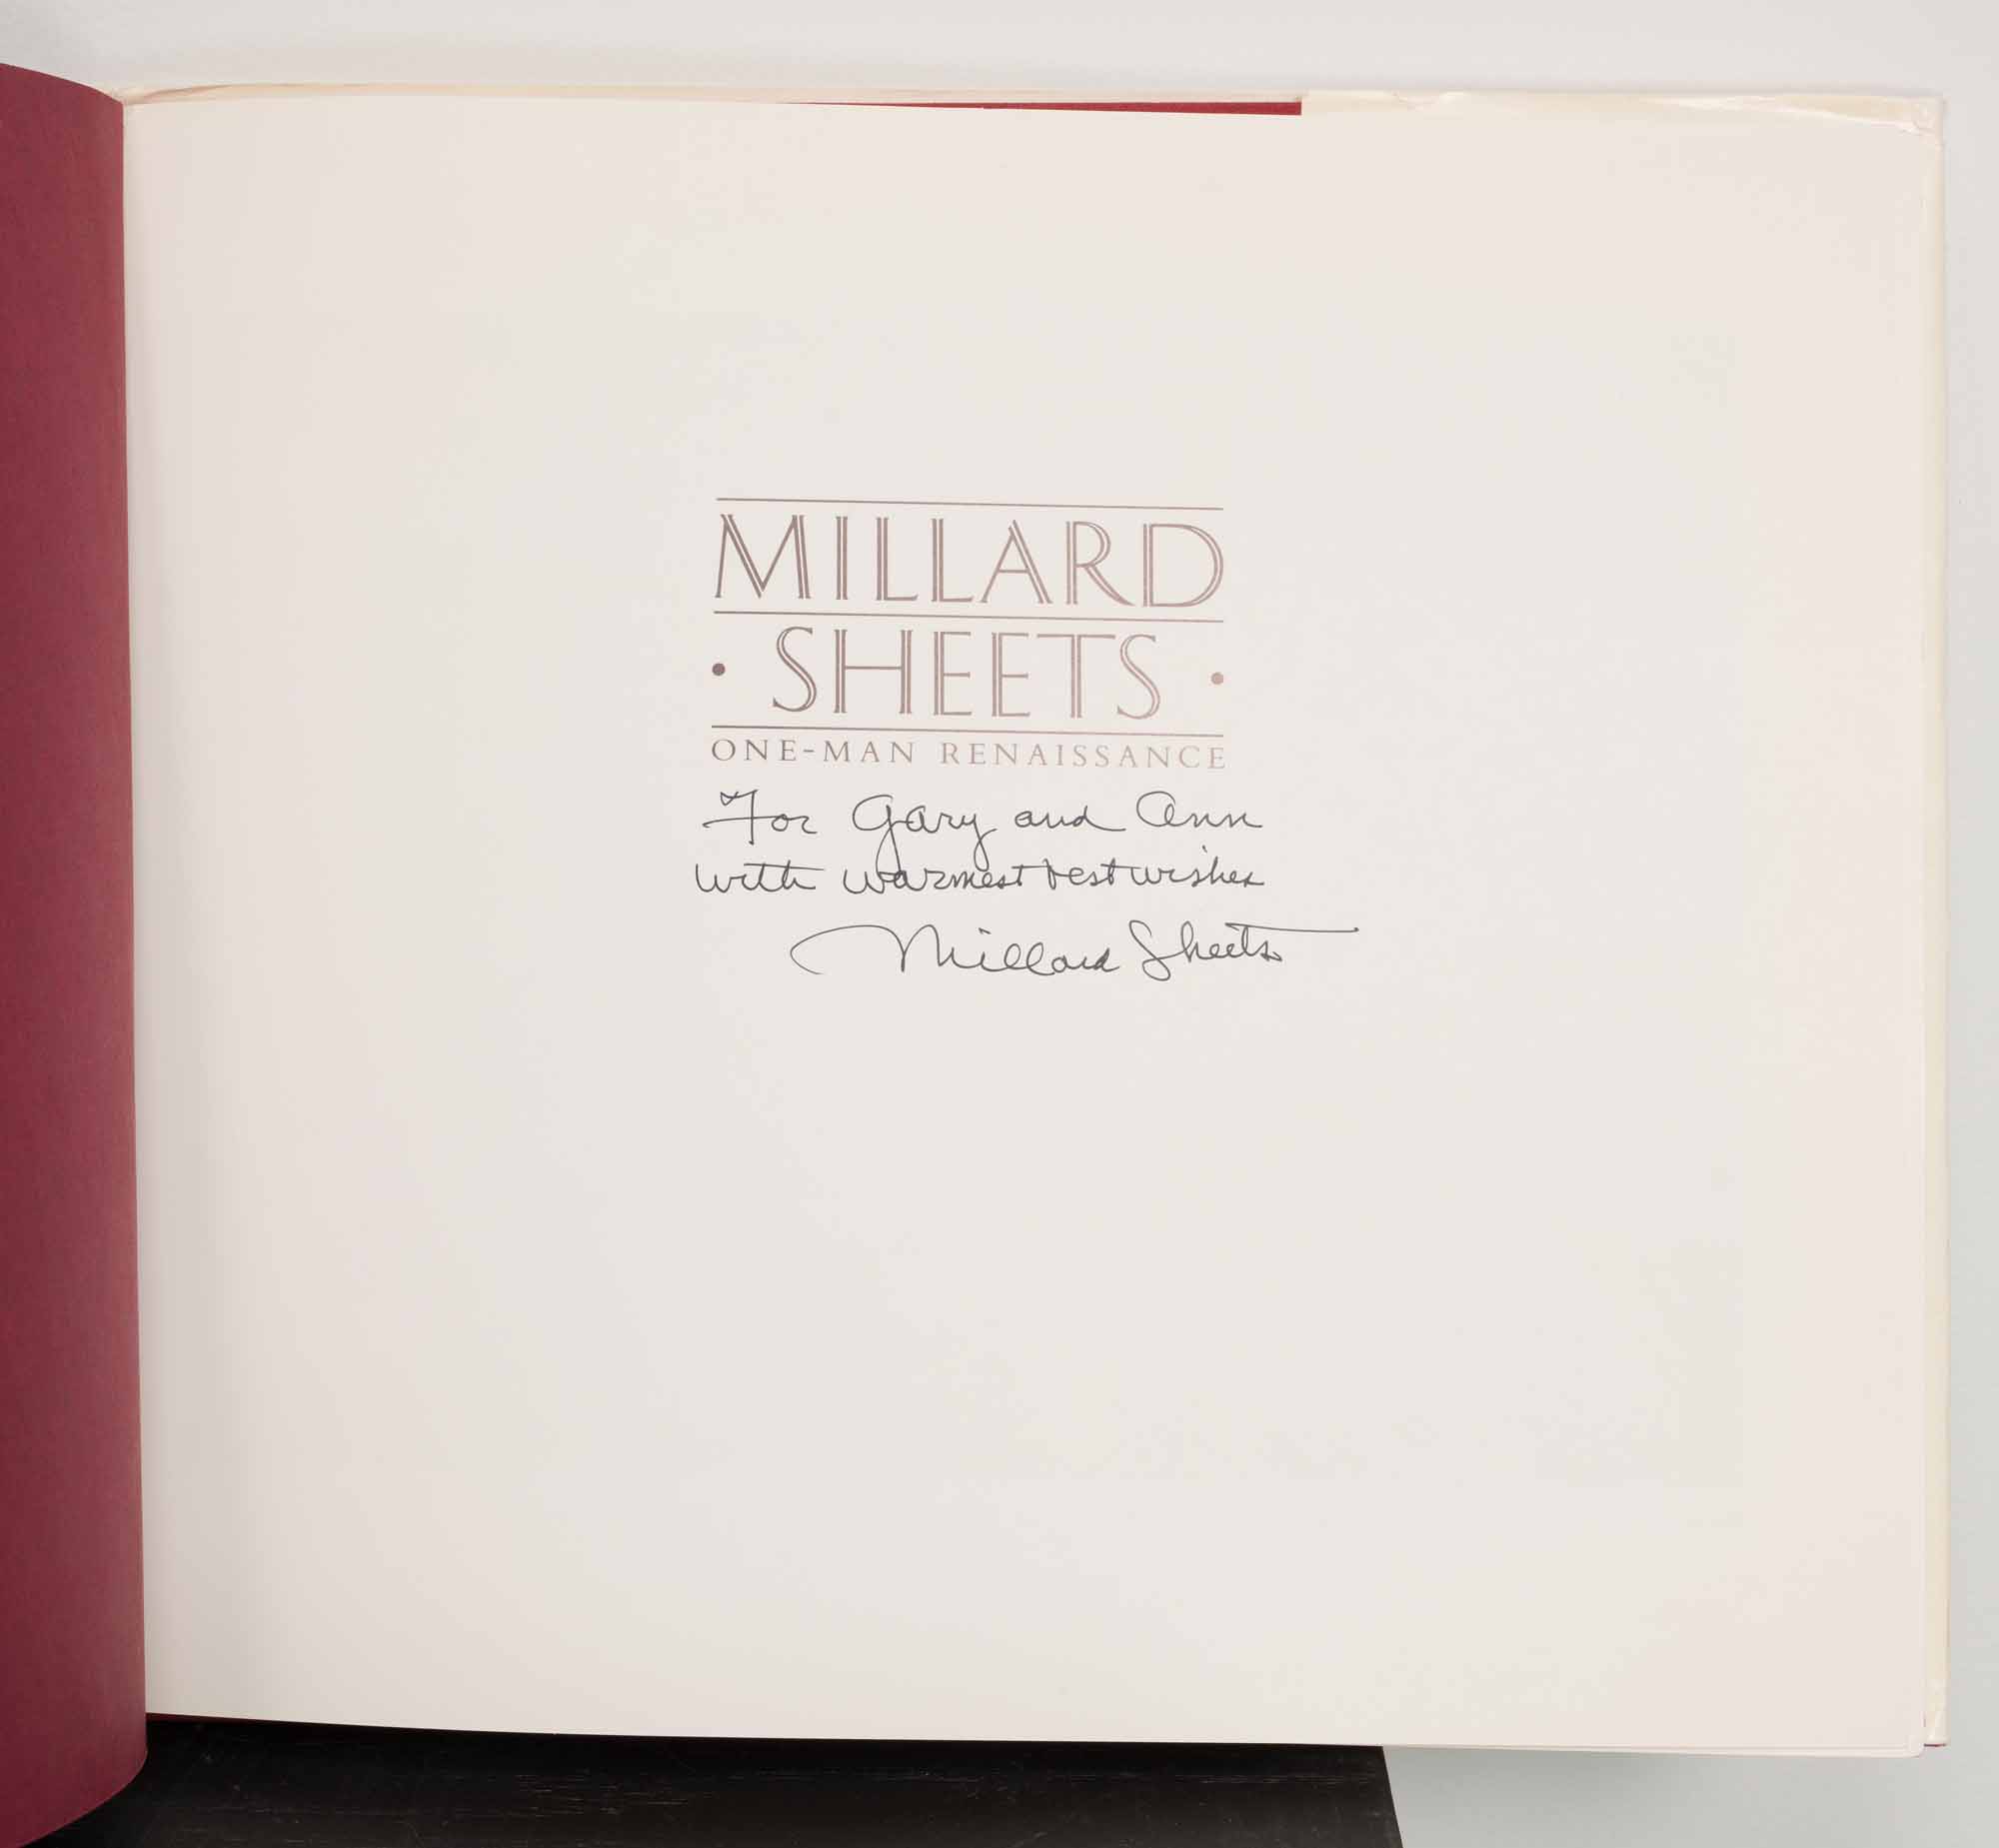 MILLARD
· SHEETS ·
ONE-MAN RENAISSANCE
For Gary and Ann
with warmest best wishes
Millard Sheets